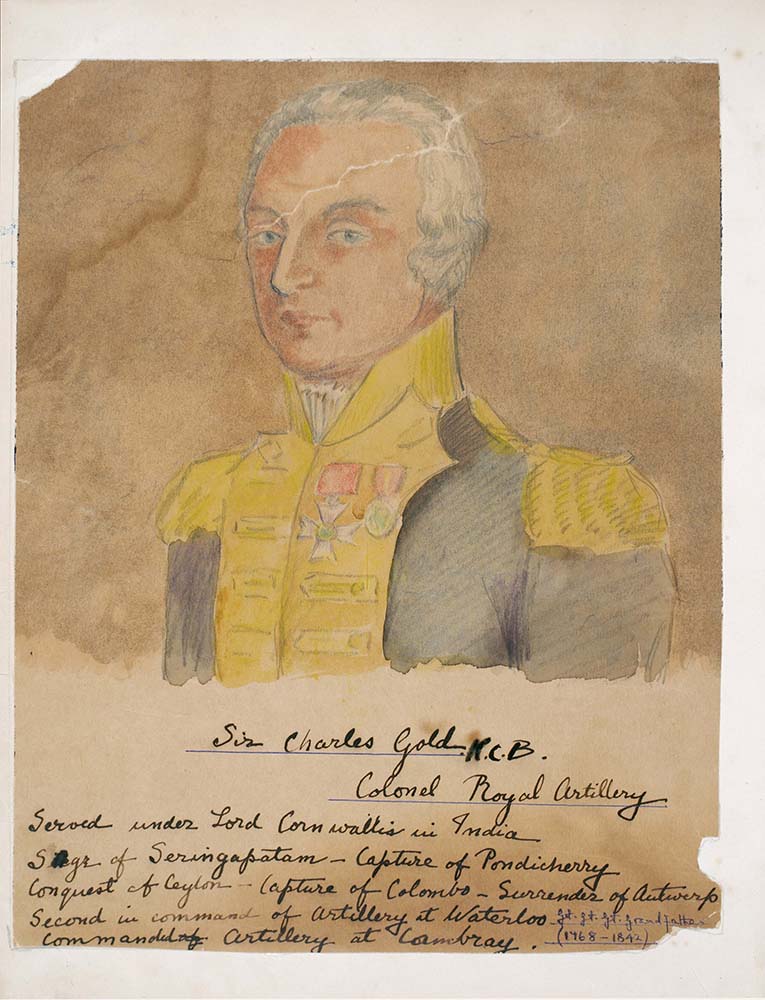 Sir Charles Gold K.C.B.
Colonel Royal Artillery
Served under Lord Cornwallis in India
Siege of Seringapatam – Capture of Pondicherry
Conquest of Ceylon – Capture of Colombo – Surrender of Antwerp
Second in command of Artillery at Waterloo gt. gt. gt. grandfather
Commanded Artillery at Cambray. (1768–1842)